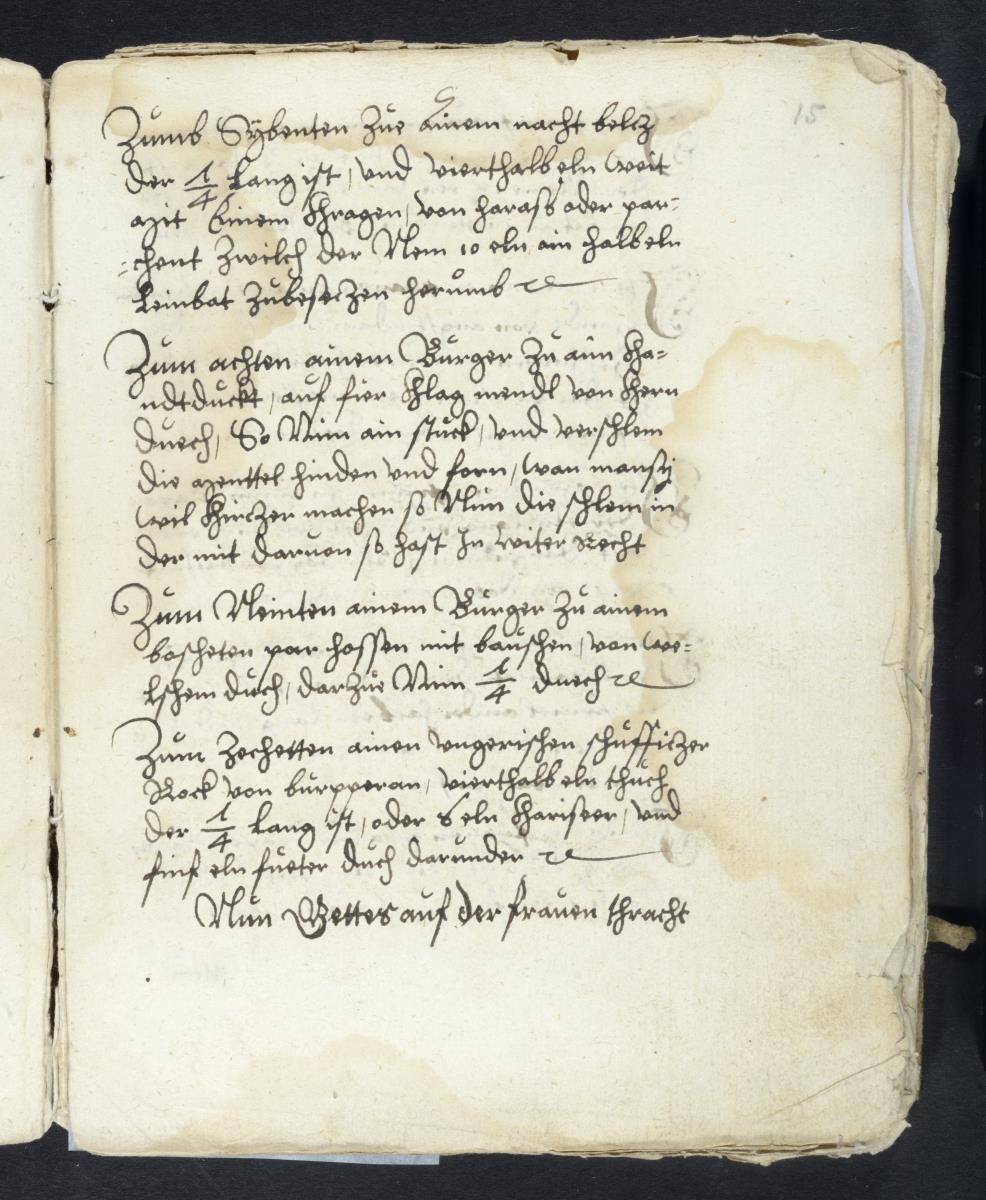 15
Zumb Sybenten zue ainem nacht beltz
der 1/4 Lang ist, und vierthalb eln weit
mit Einem Khragen, von harass oder par-
-chent zwilch der Nem 10 eln ain halb eln
Leinbat zubesetzen herumb
Zum achten ainem Burger zu ain Kha-
ndtduckt, auf fier Khlag mendl von Khern
duech, So Nim ain stuck, und verschlem
die menttel hinden und forn, wan
wil Khirczer machen so Nim die schlem in
der mit daruon so hast In witer Recht
Zum Neinten ainem Burger zu ainem
boscheten par hossen mit bauschen, von we-
lschem duch, darzue Nim 1/4 duech
Zum Zechetten ainen ungerischen
Rock von burpperan, vierthalb eln thuch
der 1/4 Lang ist, oder 6 eln Khariseer, und
finf eln fueter duch darunder
Nun Gettes auf der frauen thracht